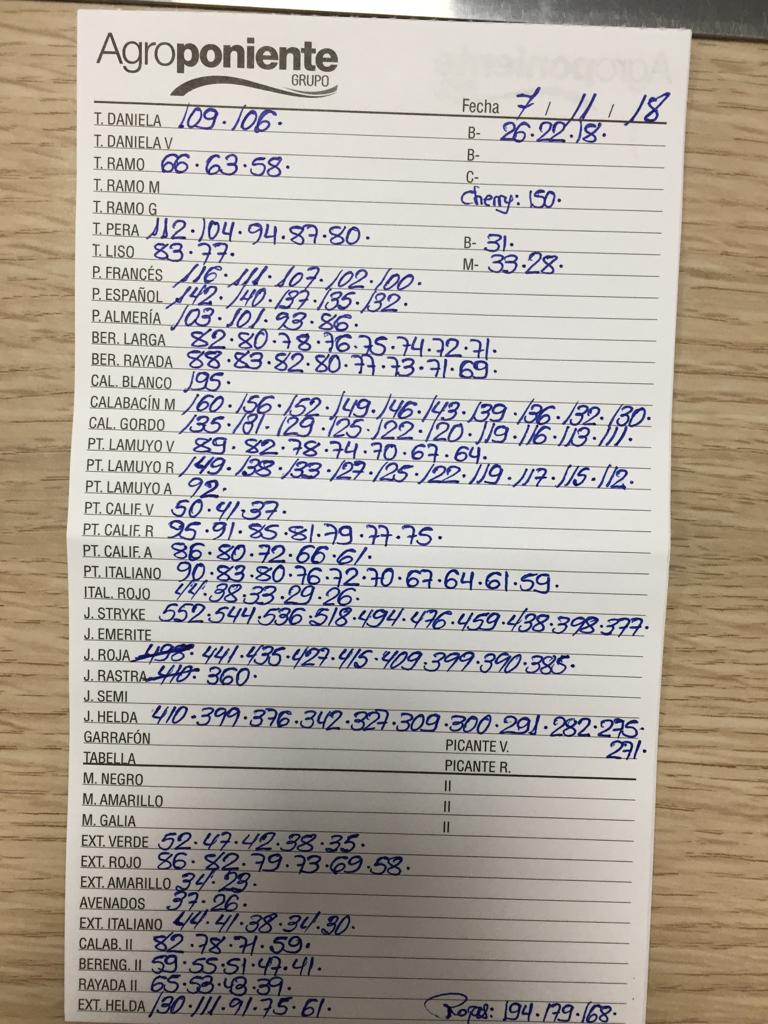 Agroponiente
GRUPO
Fecha 7 / 11 / 18
T. DANIELA 109·106· B- 26·22·18·
T. DANIELA V B-
T. RAMO 66·63·58· C-
T. RAMO M Cherry: 150·
T. RAMO G
T. PERA 112·104·94·87·80· B- 31·
T. LISO 83·77· M- 33·28·
P. FRANCÉS 116·111·107·102·100·
P. ESPAÑOL 142·140·137·135·132·
P. ALMERÍA 103·101·93·86·
BER. LARGA 82·80·78·76·75·74·72·71·
BER. RAYADA 88·83·82·80·77·73·71·69·
CAL. BLANCO 195·
CALABACÍN M 160·156·152·149·146·143·139·136·132·130·
CAL. GORDO 135·131·129·125·122·120·119·116·113·111·
PT. LAMUYO V 89·82·78·74·70·67·64·
PT. LAMUYO R 149·138·133·127·125·122·119·117·115·112·
PT. LAMUYO A 92·
PT. CALIF. V 50·41·37·
PT. CALIF. R 95·91·85·81·79·77·75·
PT. CALIF. A 86·80·72·66·61·
PT. ITALIANO 90·83·80·76·72·70·67·64·61·59·
ITAL. ROJO 44·38·33·29·26·
J. STRYKE 552·544·536·518·494·476·459·438·398·377·
J. EMERITE
J. ROJA 441·435·427·415·409·399·390·385·
J. RASTRA 410· 360·
J. SEMI
J. HELDA 410·399·376·342·327·309·300·291·282·275·
GARRAFÓN PICANTE V. 271·
TABELLA PICANTE R.
M. NEGRO II
M. AMARILLO II
M. GALIA II
EXT. VERDE 52·47·42·38·35·
EXT. ROJO 86·82·79·73·69·58·
EXT. AMARILLO 34·23·
AVENADOS 37·26·
EXT. ITALIANO 44·41·38·34·30·
CALAB. II 82·78·71·59·
BERENG. II 59·55·51·47·41·
RAYADA II 65·53·43·39·
EXT. HELDA 130·111·91·75·61· 194·179·168·